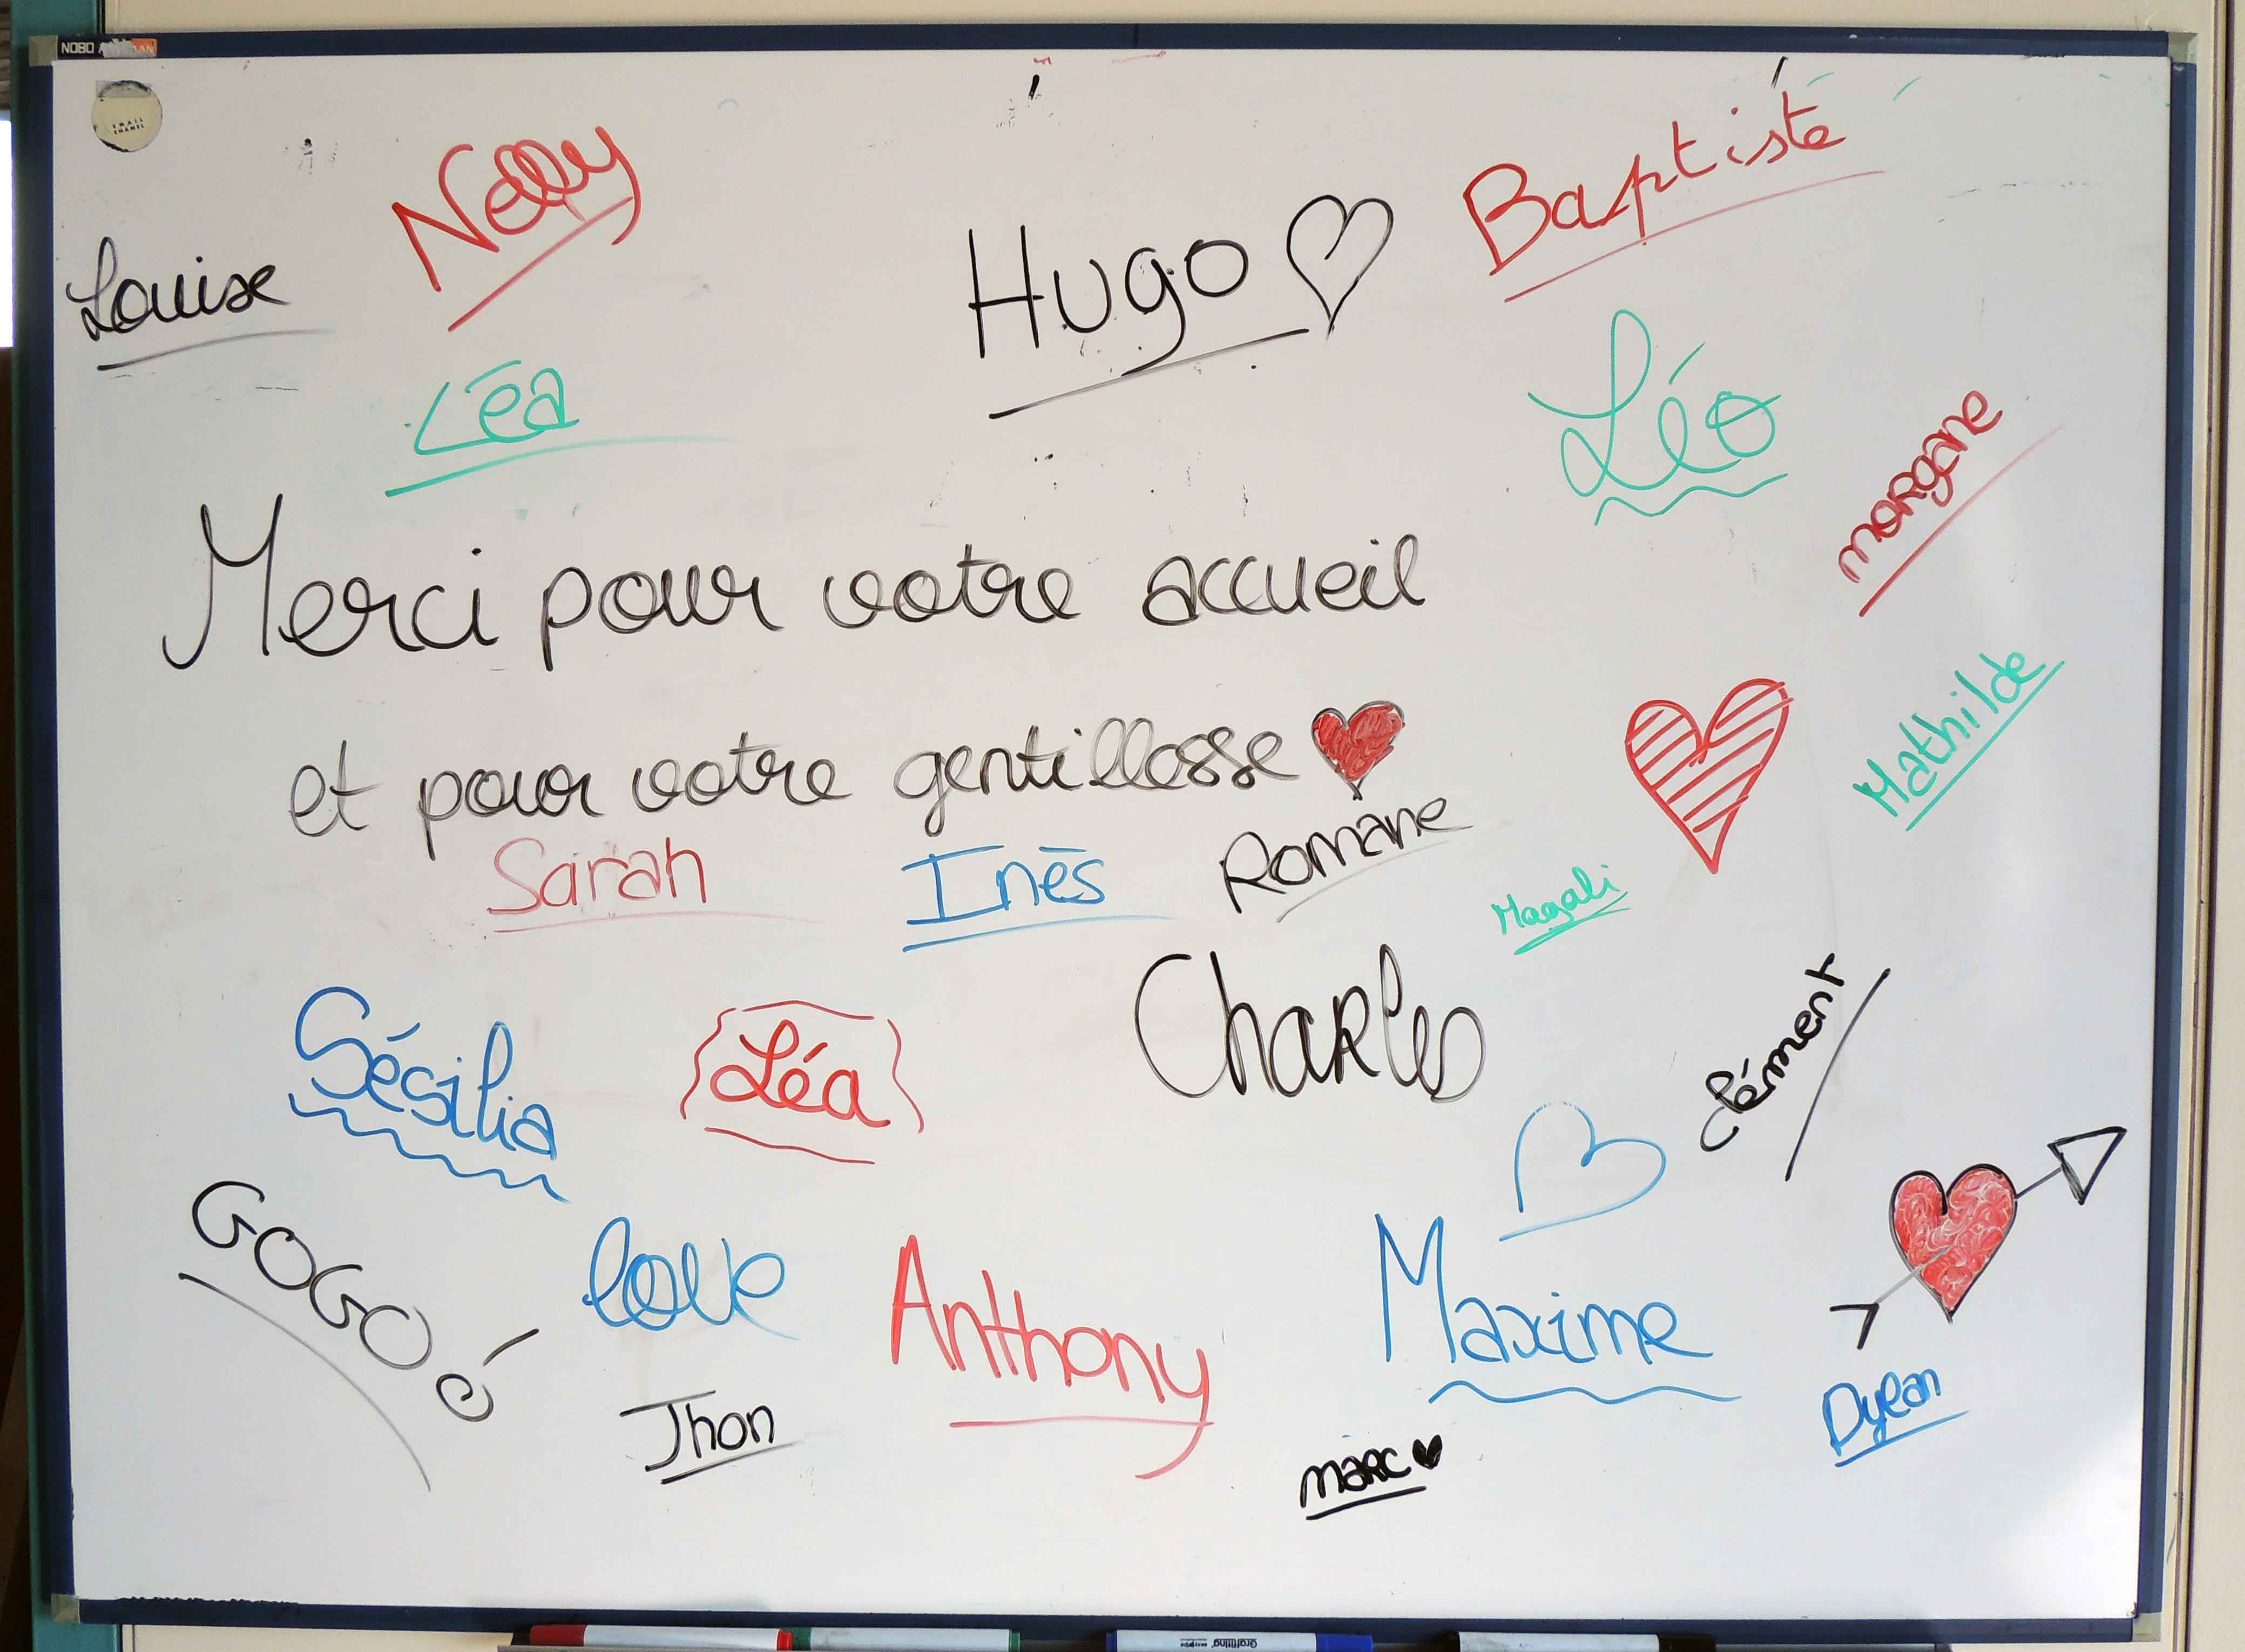 NOBO
EMAIL
ENAMEL
Nelly
Baptiste
Louise
Hugo
Léa
Léo
morgane
Merci pour votre accueil
et pour votre gentillesse
Mathilde
Sarah
Inès
Romane
Magali
Charles
Clément
Sésilia
Léa
GOGO é
love
Anthony
Maxime
Jhon
marc
Dylan
Graffiting